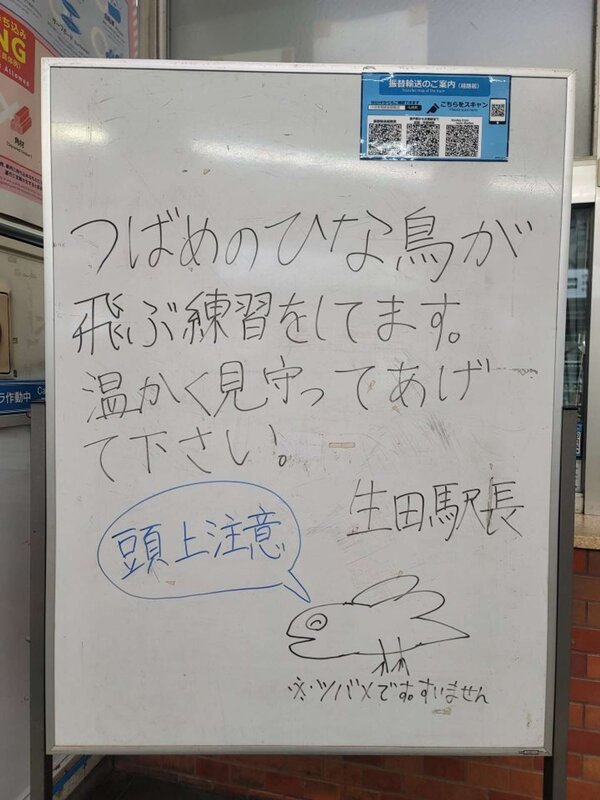 振替輸送のご案内（経路図）
こちらをスキャン
つばめのひな鳥が
飛ぶ練習をしてます。
温かく見守ってあげ
て下さい。
生田駅長
頭上注意
※ツバメです。すいません
ち込み
NG
角材
ラ作動中